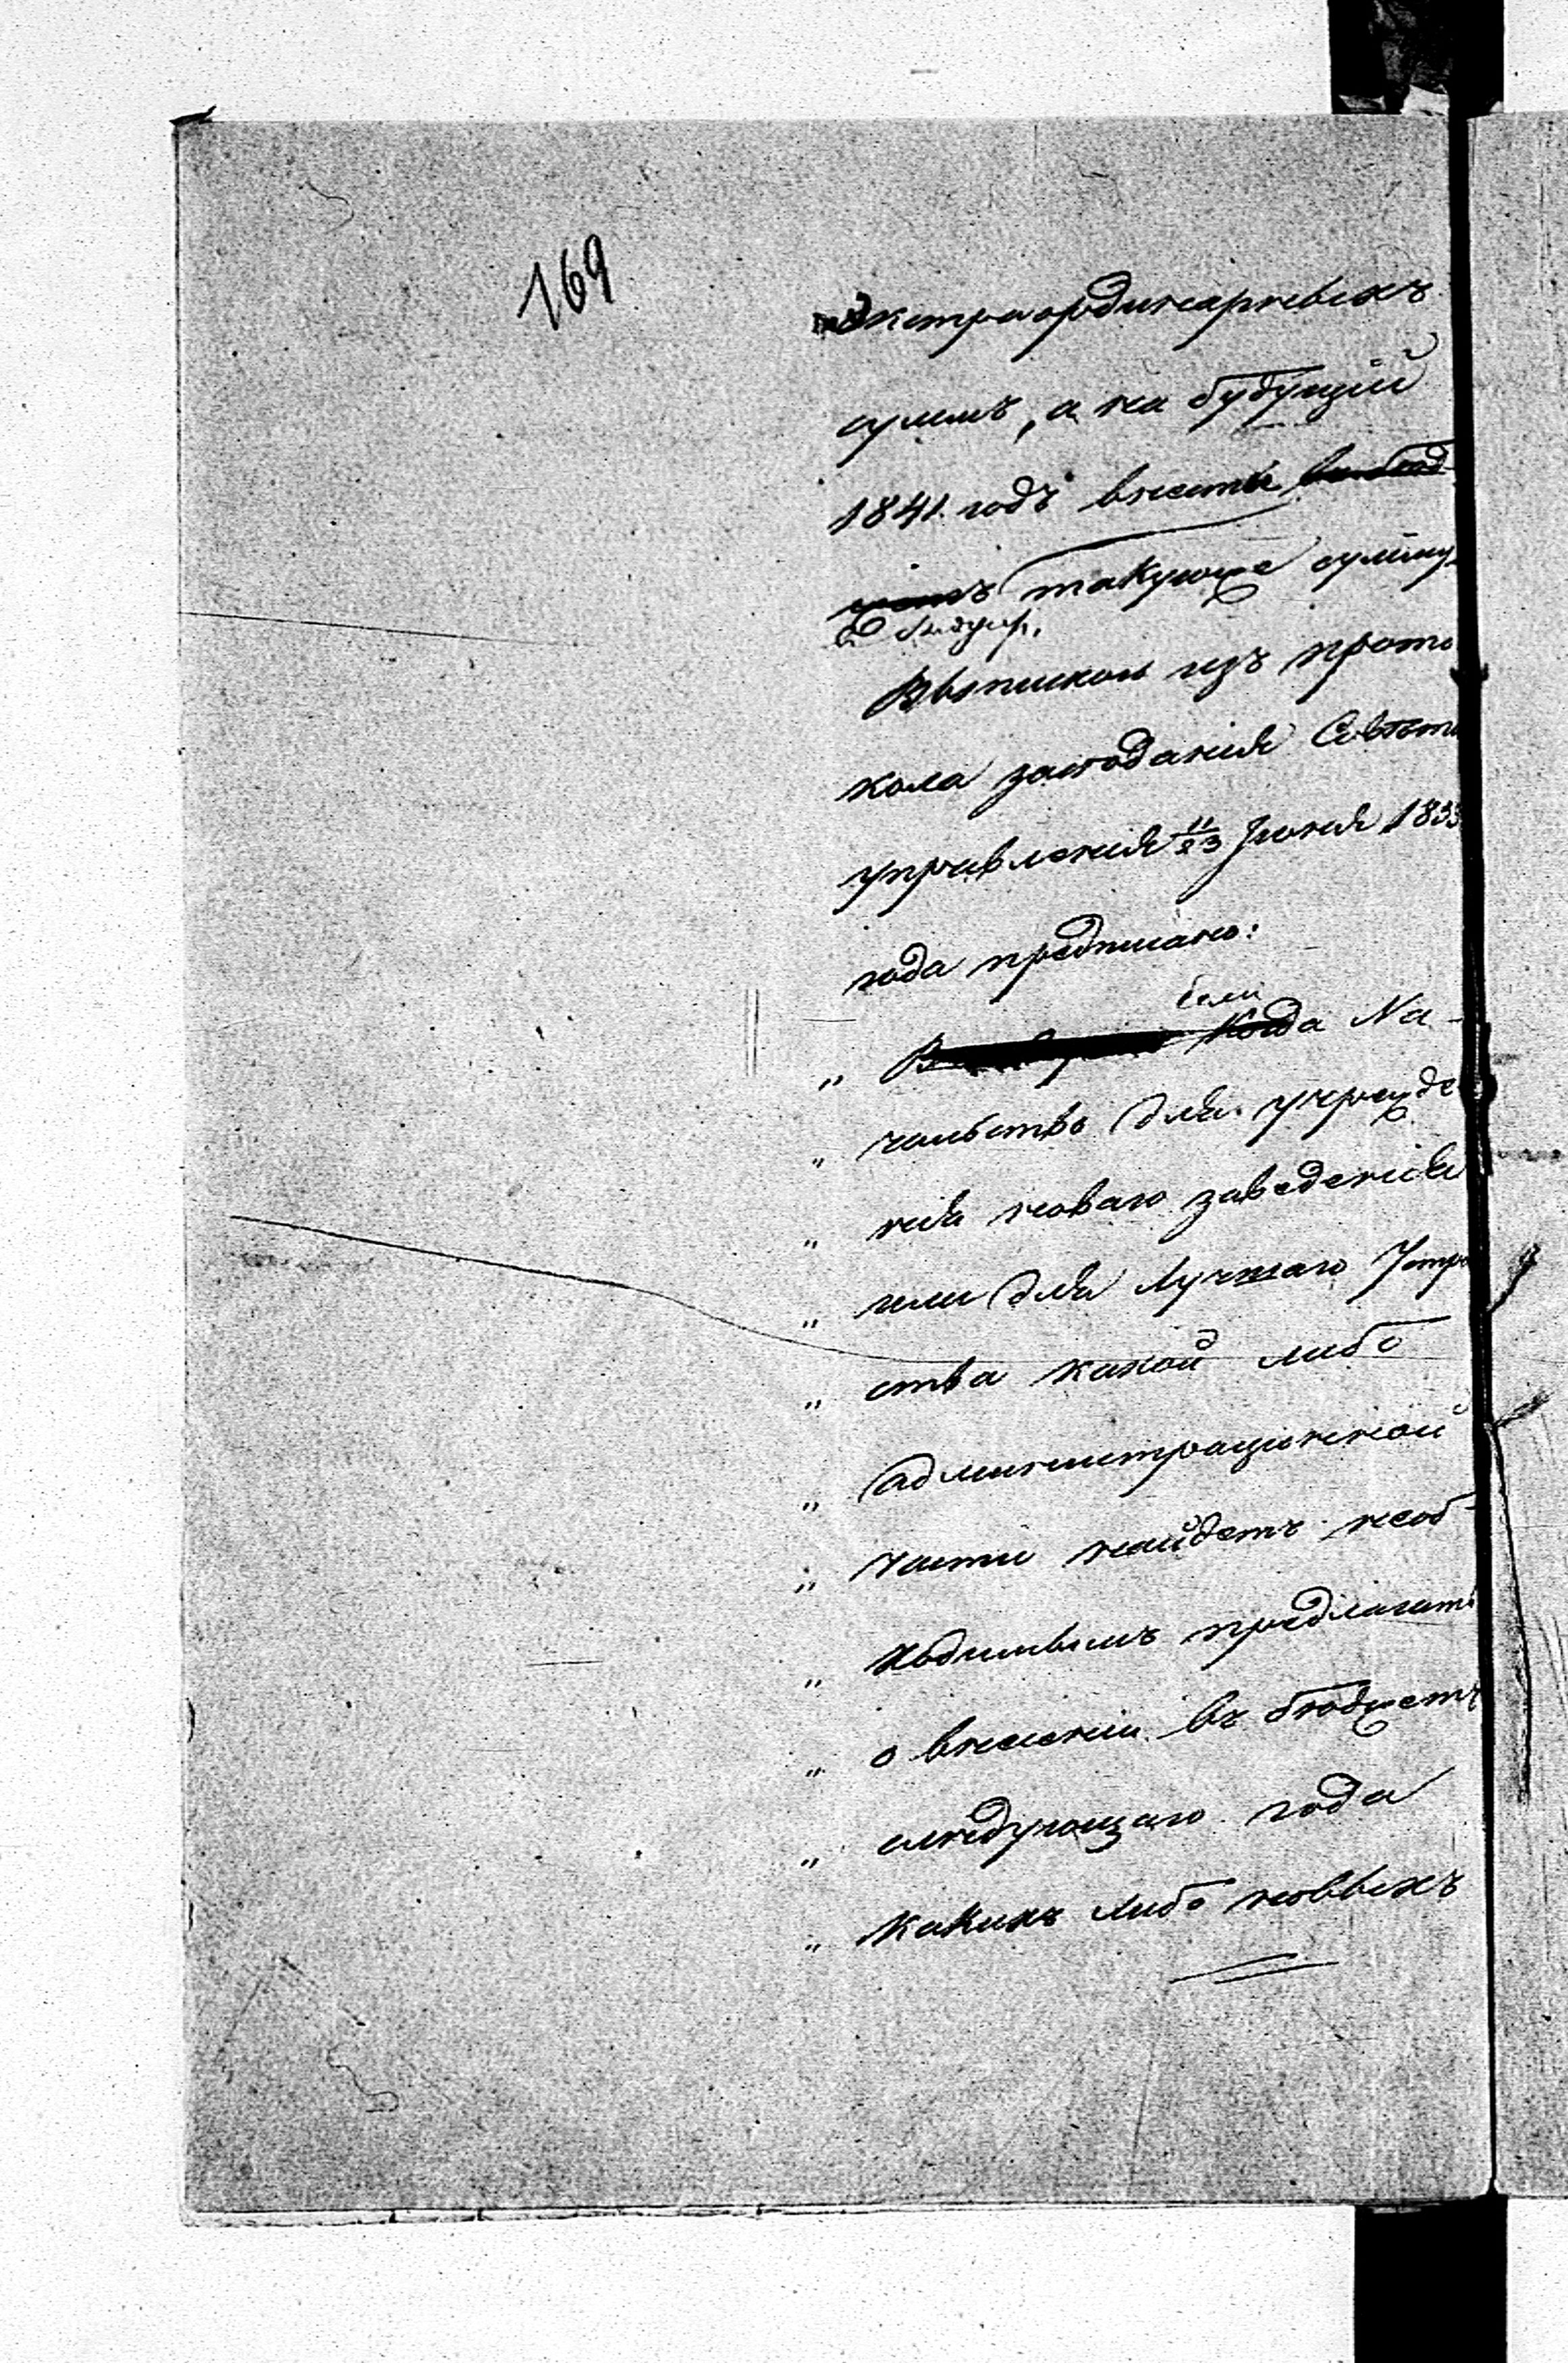 169
экстраординарныхъ
суммъ, а на будущій
1841. годъ внести
такуюже сумму
Выпискою изъ прото
кола засѣданія Совѣта
управленія 11/23 Іюня 1833
года предписано:
если
„ Когда На-
„ чальство для учрежде
„ нія новаго заведенія
„ или для лучшаго Устро
„ ства какой либо
„ администраціонной
„ части найдетъ необ-
„ ходимымъ предлагать
„ о внесеніи въ бюджетъ
„ слѣдующаго года
„ какихъ либо новыхъ